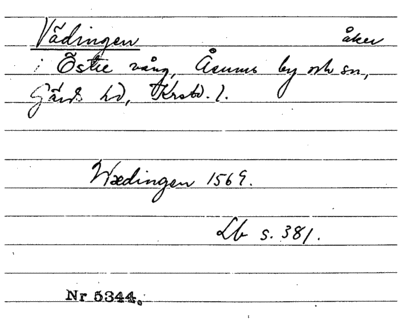 Vädingen åker
i Östre vång, Åsums by och sn,
Gärds hd, Krstd. l.
Wædingen 1569.
Lb s. 381.
Nr 5344.